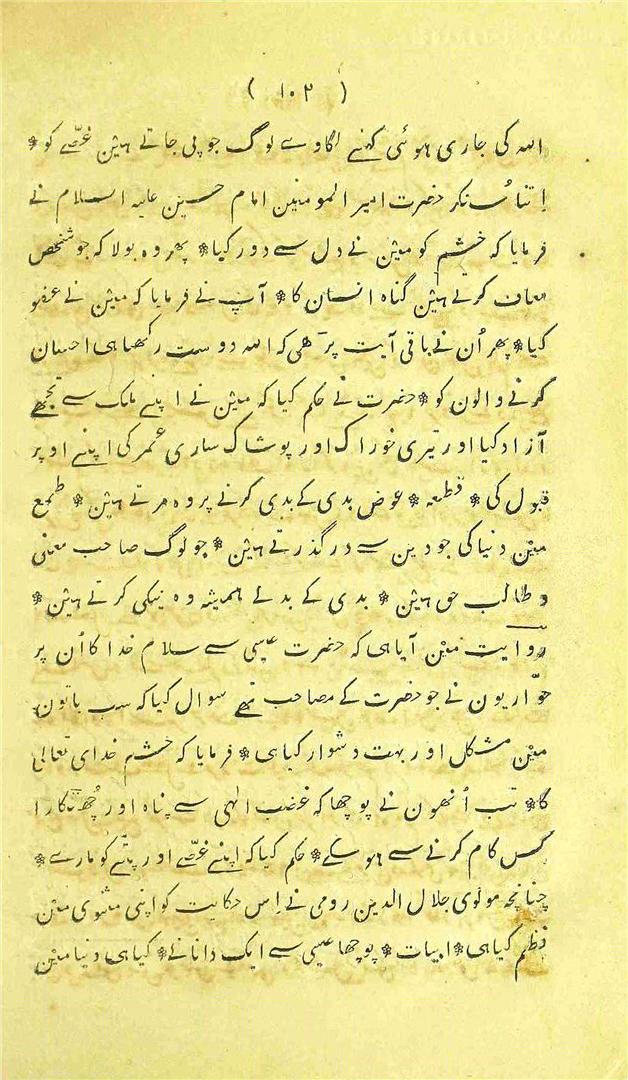 ( ۱۰۲ )
اللہ کی جاری ہوئی کہنے لگا وے لوگ جو پی جاتے ہین غصّے کو *
اِتنا سُنکر حضرت امیر المومنین امام حسین علیہ السلام نے
فرمایا کہ خشم کو مین نے دل سے دور کیا * پھر وہ بولا کہ جو شخص
معاف کرتے ہین گناہ انسان کا * آپ نے فرمایا کہ مین نے عفو
کیا * پھر اُن نے باقی آیت پرَھی کہ اللہ دوست رکھتا ہی احسان
کرنے والون کو * حضرت نے حکم کیا کہ مین نے اپنے ملک سے تجھے
آزاد کیا اور تیری خوراک اور پوشاک ساری عمر کی اپنے اوپر
قبول کی * قطعہ * عوض بدی کے بدی کرنے پر وہ مرتے ہین * طمع
مین دنیا کی جو دین سے درگذرتے ہین * جو لوگ صاحب معنی
و طالب حق ہین * بدی کے بدلے ہمیشہ وہ نیکی کرتے ہین *
روایت مین آیا ہی کہ حضرت عیسی سے سلام خدا کا اُن پر
حوّاریون نے جو حضرت کے مصاحب تھے سوال کیا کہ سب باتون
مین مشکل اور بہت دشوار کیا ہی * فرمایا کہ خشم خدای تعالی
کا * تب اُنھون نے پوچھا کہ غضب الہی سے پناہ اور چُھٹکارا
کس کام کرنے سے ہو سکے * حکم کیا کہ اپنے غصّے اور پتّے کو مارے *
چنانچہ مولوی جلال الدین رومی نے اِس حکایت کو اپنی مثنوی مین
نظم کیا ہی * ابیات * پوچھا عیسی سے ایک دانا نے * کیا ہی دنیا مین